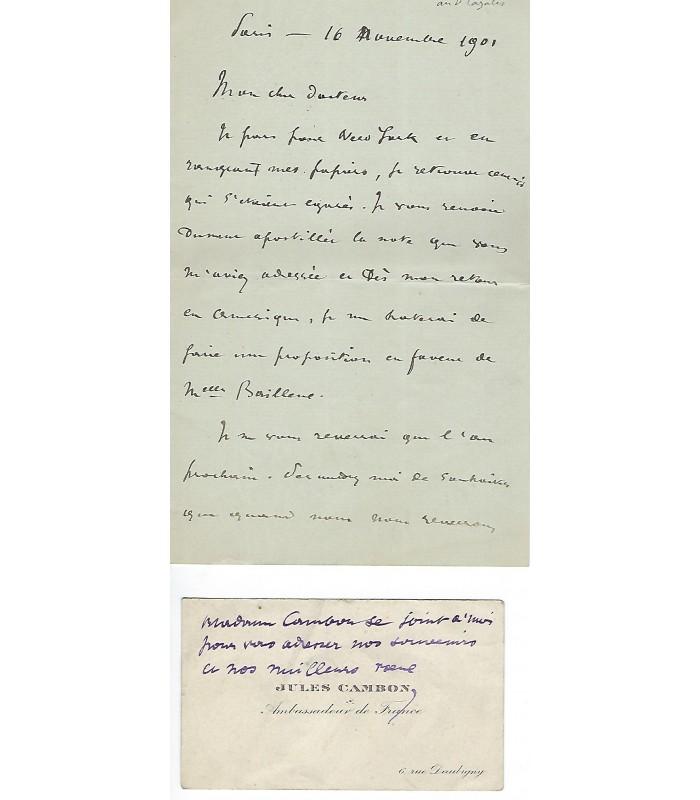 Paris — 16 Novembre 1901
Mon cher docteur
Je pars pour New York et en
rangeant mes papiers, je retrouve
qui s'étaient égarés. Je vous renvoie
dument apostillée la note que vous
m'aviez adressée et Dès mon retour
en Amérique, je me haterai de
faire une proposition en faveur de
Melle
Je ne vous reverrai que l'an
prochain. permettez moi de souhaiter
que quand nous nous reverrons
Madame Cambon se joint à moi
pour vous adresser nos souvenirs
et nos meilleurs voeux
JULES CAMBON
Ambassadeur de France
6, rue Daubigny